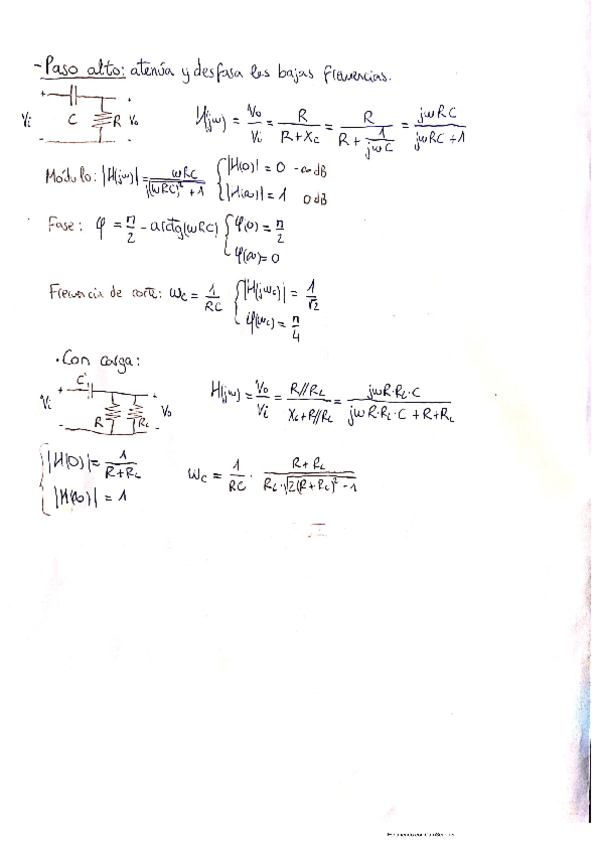 - Paso alto: atenúa y desfasa las bajas frecuencias.
Vi C R Vo H(jω) = Vo/Vi = R/(R+Xc) = R/(R + 1/(jωC)) = jωRC/(jωRC+1)
Módulo: |H(jω)| = ωRC/√((ωRC)²+1) { |H(0)| = 0 -∞ dB
|H(∞)| = 1 0 dB
Fase: φ = π/2 - arctg(ωRC) { φ(0) = π/2
φ(∞) = 0
Frecuencia de corte: ωc = 1/RC { |H(jωc)| = 1/√2
φ(ωc) = π/4
· Con carga:
Vi C R RL Vo H(jω) = Vo/Vi = R//RL/(Xc+R//RL) = jωR·RL·C/(jωR·RL·C + R+RL)
{ |H(0)| = 1/(R+RL)
|H(∞)| = 1
ωc = 1/RC · (R+RL)/(RL·√(2(R+RL)²-1))